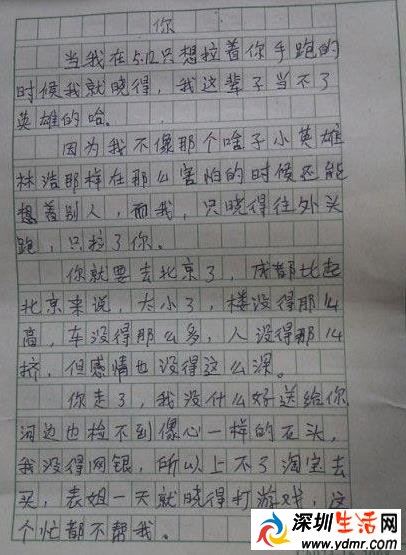 你
当我在5.12只想拉着你手跑的
时候我就晓得，我这辈子当不了
英雄的哈。
因为我不像那个啥子小英雄
林浩那样在那么害怕的时候还能
想着别人，而我，只晓得往外头
跑，只拉了你。
你就要去北京了，成都比起
北京来说，太小了，楼没得那么
高，车没得那么多，人没得那么
挤，但感情也没得这么深。
你走了，我没什么好送给你
河边也捡不到像心一样的石头，
我没得网银，所以上不了淘宝去
买，表姐一天就晓得打游戏，这
个忙都不帮我。
深圳生活网
www.ydmr.com